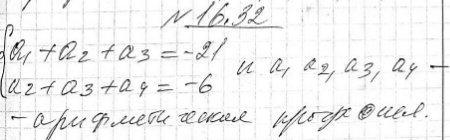 №16.32
{a₁ + a₂ + a₃ = -21
a₂ + a₃ + a₄ = -6 и a₁ a₂, a₃, a₄ -
- арифметическая